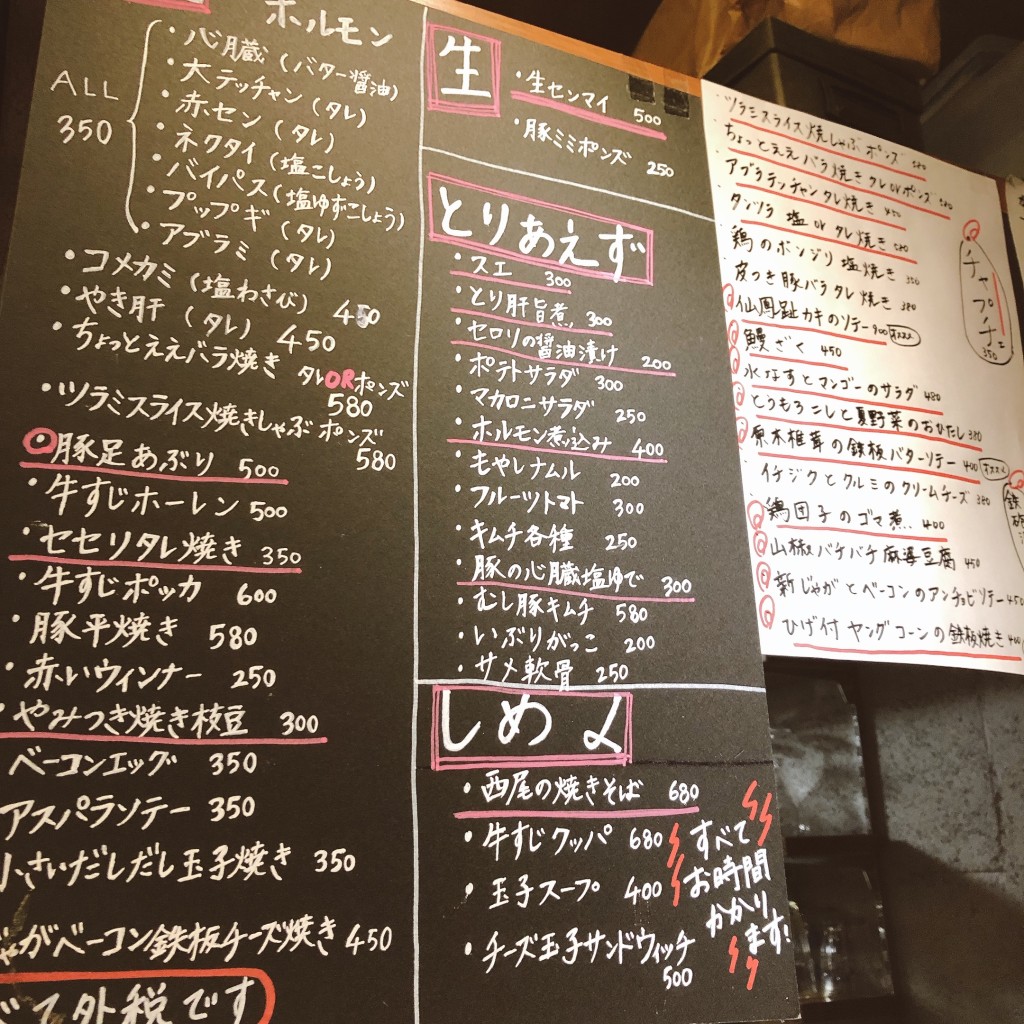 ホルモン
ALL
350
・心臓(バター醤油)
・大テッチャン(タレ)
・赤セン(タレ)
・ネクタイ(塩こしょう)
・バイパス(塩ゆずこしょう)
・プップギ(タレ)
・アブラミ(タレ)
・コメカミ(塩わさび) 450
・やき肝(タレ) 450
・ちょっとええバラ焼き タレORポンズ
580
・ツラミスライス焼きしゃぶ ポンズ
580
・豚足あぶり 500
・牛すじホーレン 500
・セセリタレ焼き 350
・牛すじポッカ 600
・豚平焼き 580
・赤いウィンナー 250
・やみつき焼き枝豆 300
ベーコンエッグ 350
アスパラソテー 350
小さいだしだし玉子焼き 350
じゃがベーコン鉄板チーズ焼き 450
べて外税です
生
・生センマイ 500
・豚ミミポンズ 250
とりあえず
・スエ 300
・とり肝旨煮 300
・セロリの醤油漬け 200
・ポテトサラダ 300
・マカロニサラダ 250
・ホルモン煮込み 400
・もやしナムル 200
・フルーツトマト 300
・キムチ各種 250
・豚の心臓塩ゆで 300
・むし豚キムチ 580
・いぶりがっこ 200
・サメ軟骨 250
しめ
・西尾の焼きそば 680
・牛すじクッパ 680
・玉子スープ 400
・チーズ玉子サンドウィッチ
500
すべて
お時間
かかり
ます!
・ツラミスライス焼しゃぶ ポンズ 580
ちょっとええバラ焼き タレorポンズ 580
アブラテッチャンタレ焼き 450
タンツラ 塩 or タレ焼き 580
鶏のボンジリ塩焼き 350
皮つき豚バラタレ焼き 380
仙鳳趾カキのソテー 900 オススメ
鰻ざく 450
水なすとマンゴーのサラダ 480
とうもろこしと夏野菜のおひたし 380
原木椎茸の鉄板バターソテー 400 オススメ
イチジクとクルミのクリームチーズ 380
鶏団子のゴマ煮 400
山椒バチバチ麻婆豆腐 450
新じゃがとベーコンのアンチョビソテー 450
ひげ付ヤングコーンの鉄板焼き 400
チャプチェ
350
鉄